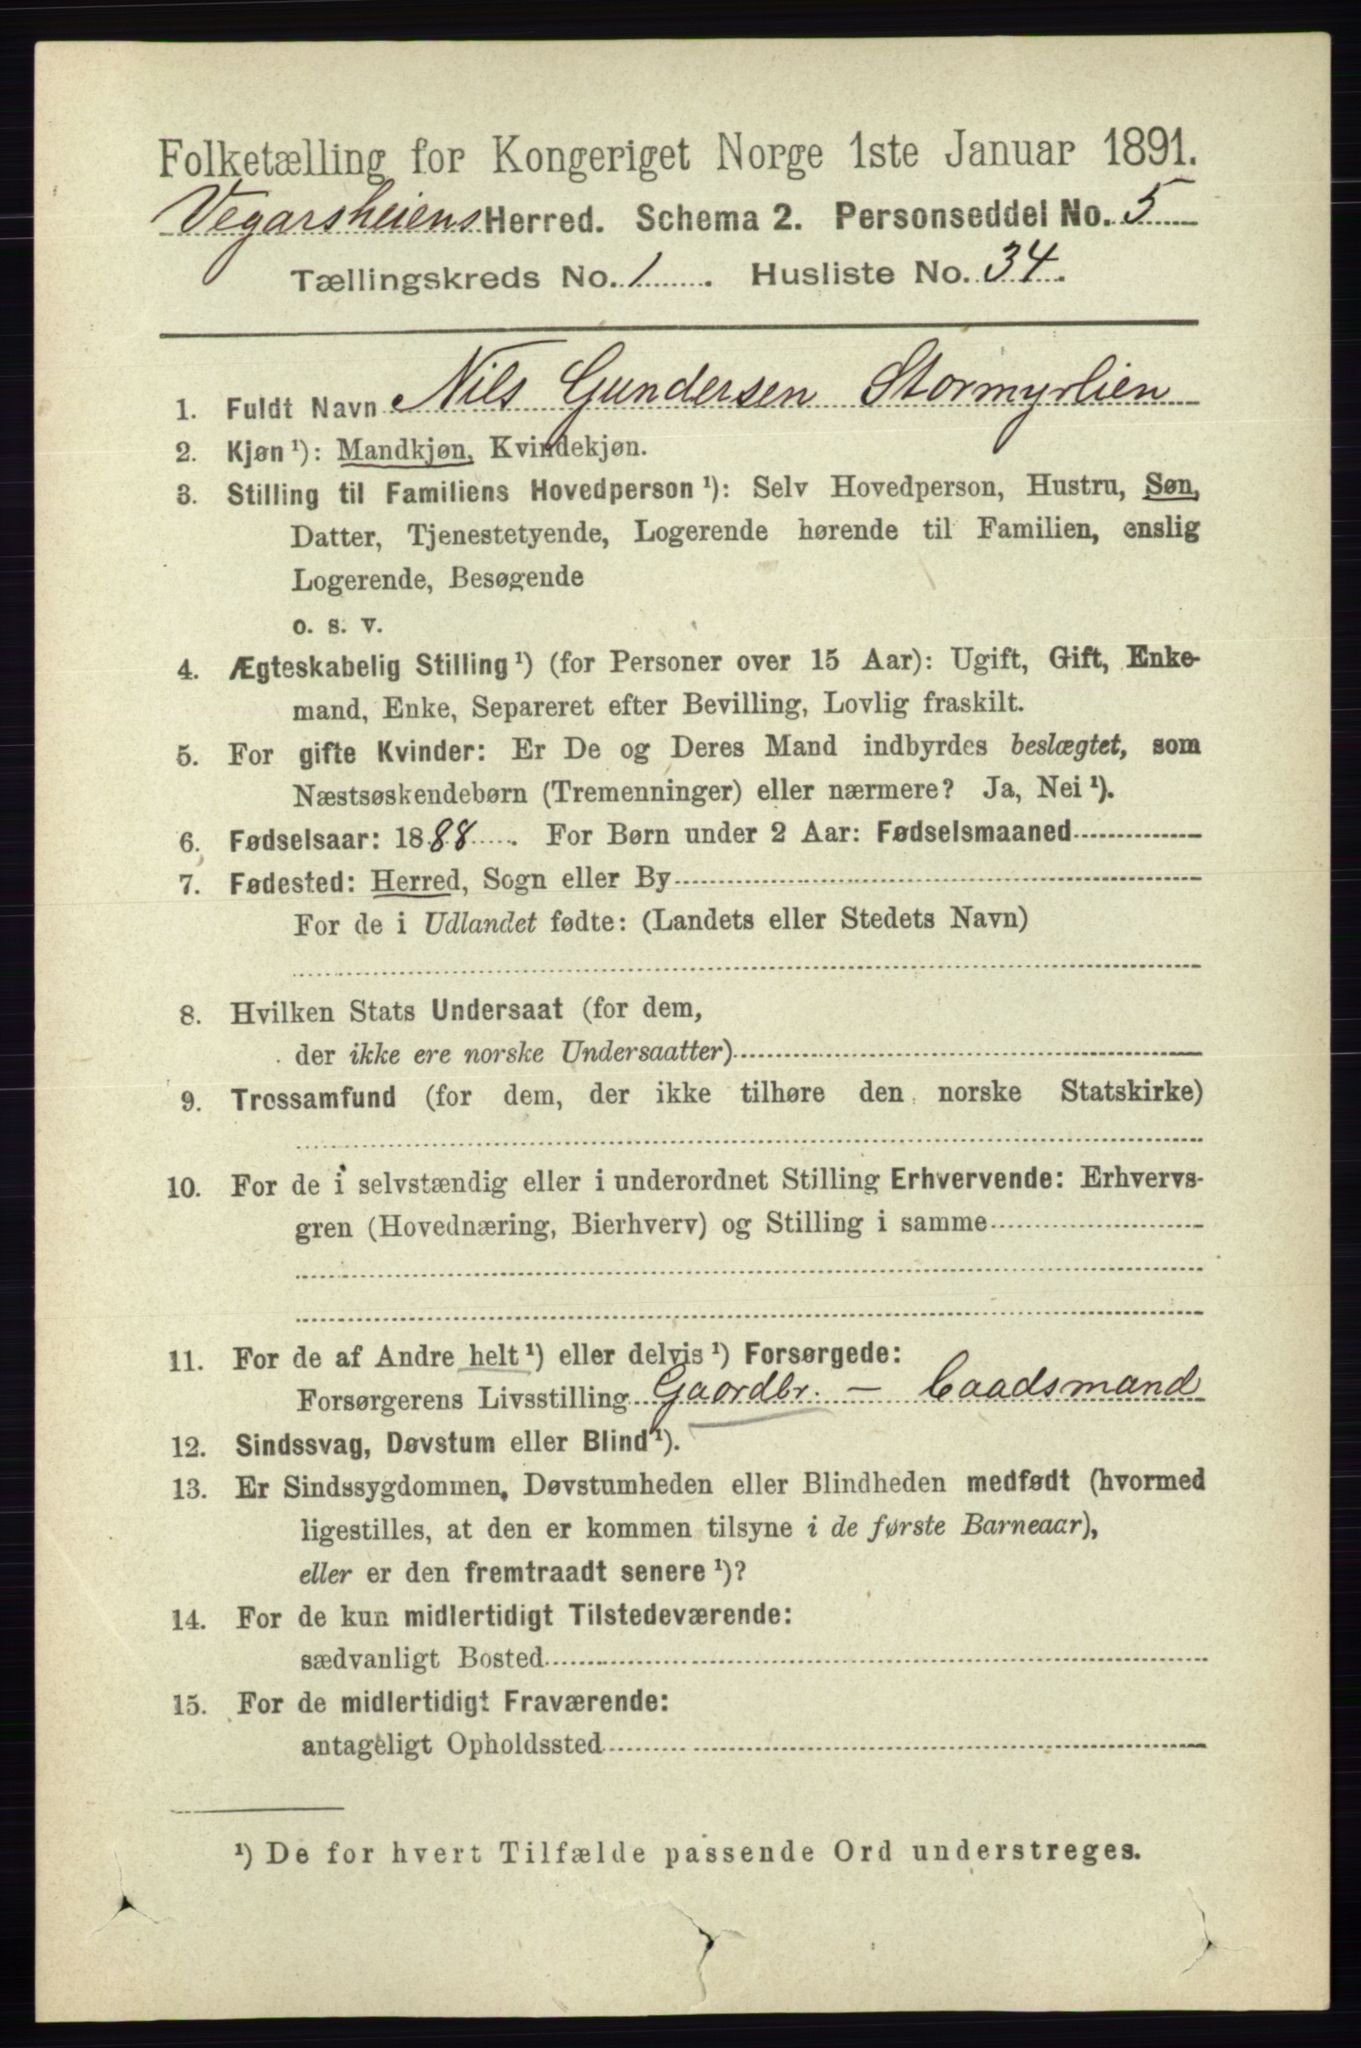 Folketælling for Kongeriget Norge 1ste Januar 1891.
Vegarsheiens Herred. Schema 2. Personseddel No. 5
Tællingskreds No. 1. Husliste No. 34.
1. Fuldt Navn Nils Gundersen Stormyrlien
2. Kjøn ¹): Mandkjøn, Kvindekjøn.
3. Stilling til Familiens Hovedperson ¹): Selv Hovedperson, Hustru, Søn,
Datter, Tjenestetyende, Logerende hørende til Familien, enslig
Logerende, Besøgende
o. s. v.
4. Ægteskabelig Stilling ¹) (for Personer over 15 Aar): Ugift, Gift, Enke-
mand, Enke, Separeret efter Bevilling, Lovlig fraskilt.
5. For gifte Kvinder: Er De og Deres Mand indbyrdes beslægtet, som
Næstsøskendebørn (Tremenninger) eller nærmere? Ja, Nei ¹).
6. Fødselsaar: 1888. For Børn under 2 Aar: Fødselsmaaned
7. Fødested: Herred, Sogn eller By
For de i Udlandet fødte: (Landets eller Stedets Navn)
8. Hvilken Stats Undersaat (for dem,
der ikke ere norske Undersaatter)
9. Trossamfund (for dem, der ikke tilhøre den norske Statskirke)
10. For de i selvstændig eller i underordnet Stilling Erhvervende: Erhvervs-
gren (Hovednæring, Bierhverv) og Stilling i samme
11. For de af Andre helt ¹) eller delvis ¹) Forsørgede:
Forsørgerens Livsstilling Gaardbr. – Baadsmand
12. Sindssvag, Døvstum eller Blind ¹).
13. Er Sindssygdommen, Døvstumheden eller Blindheden medfødt (hvormed
ligestilles, at den er kommen tilsyne i de første Barneaar),
eller er den fremtraadt senere ¹)?
14. For de kun midlertidigt Tilstedeværende:
sædvanligt Bosted
15. For de midlertidigt Fraværende:
antageligt Opholdssted
¹) De for hvert Tilfælde passende Ord understreges.